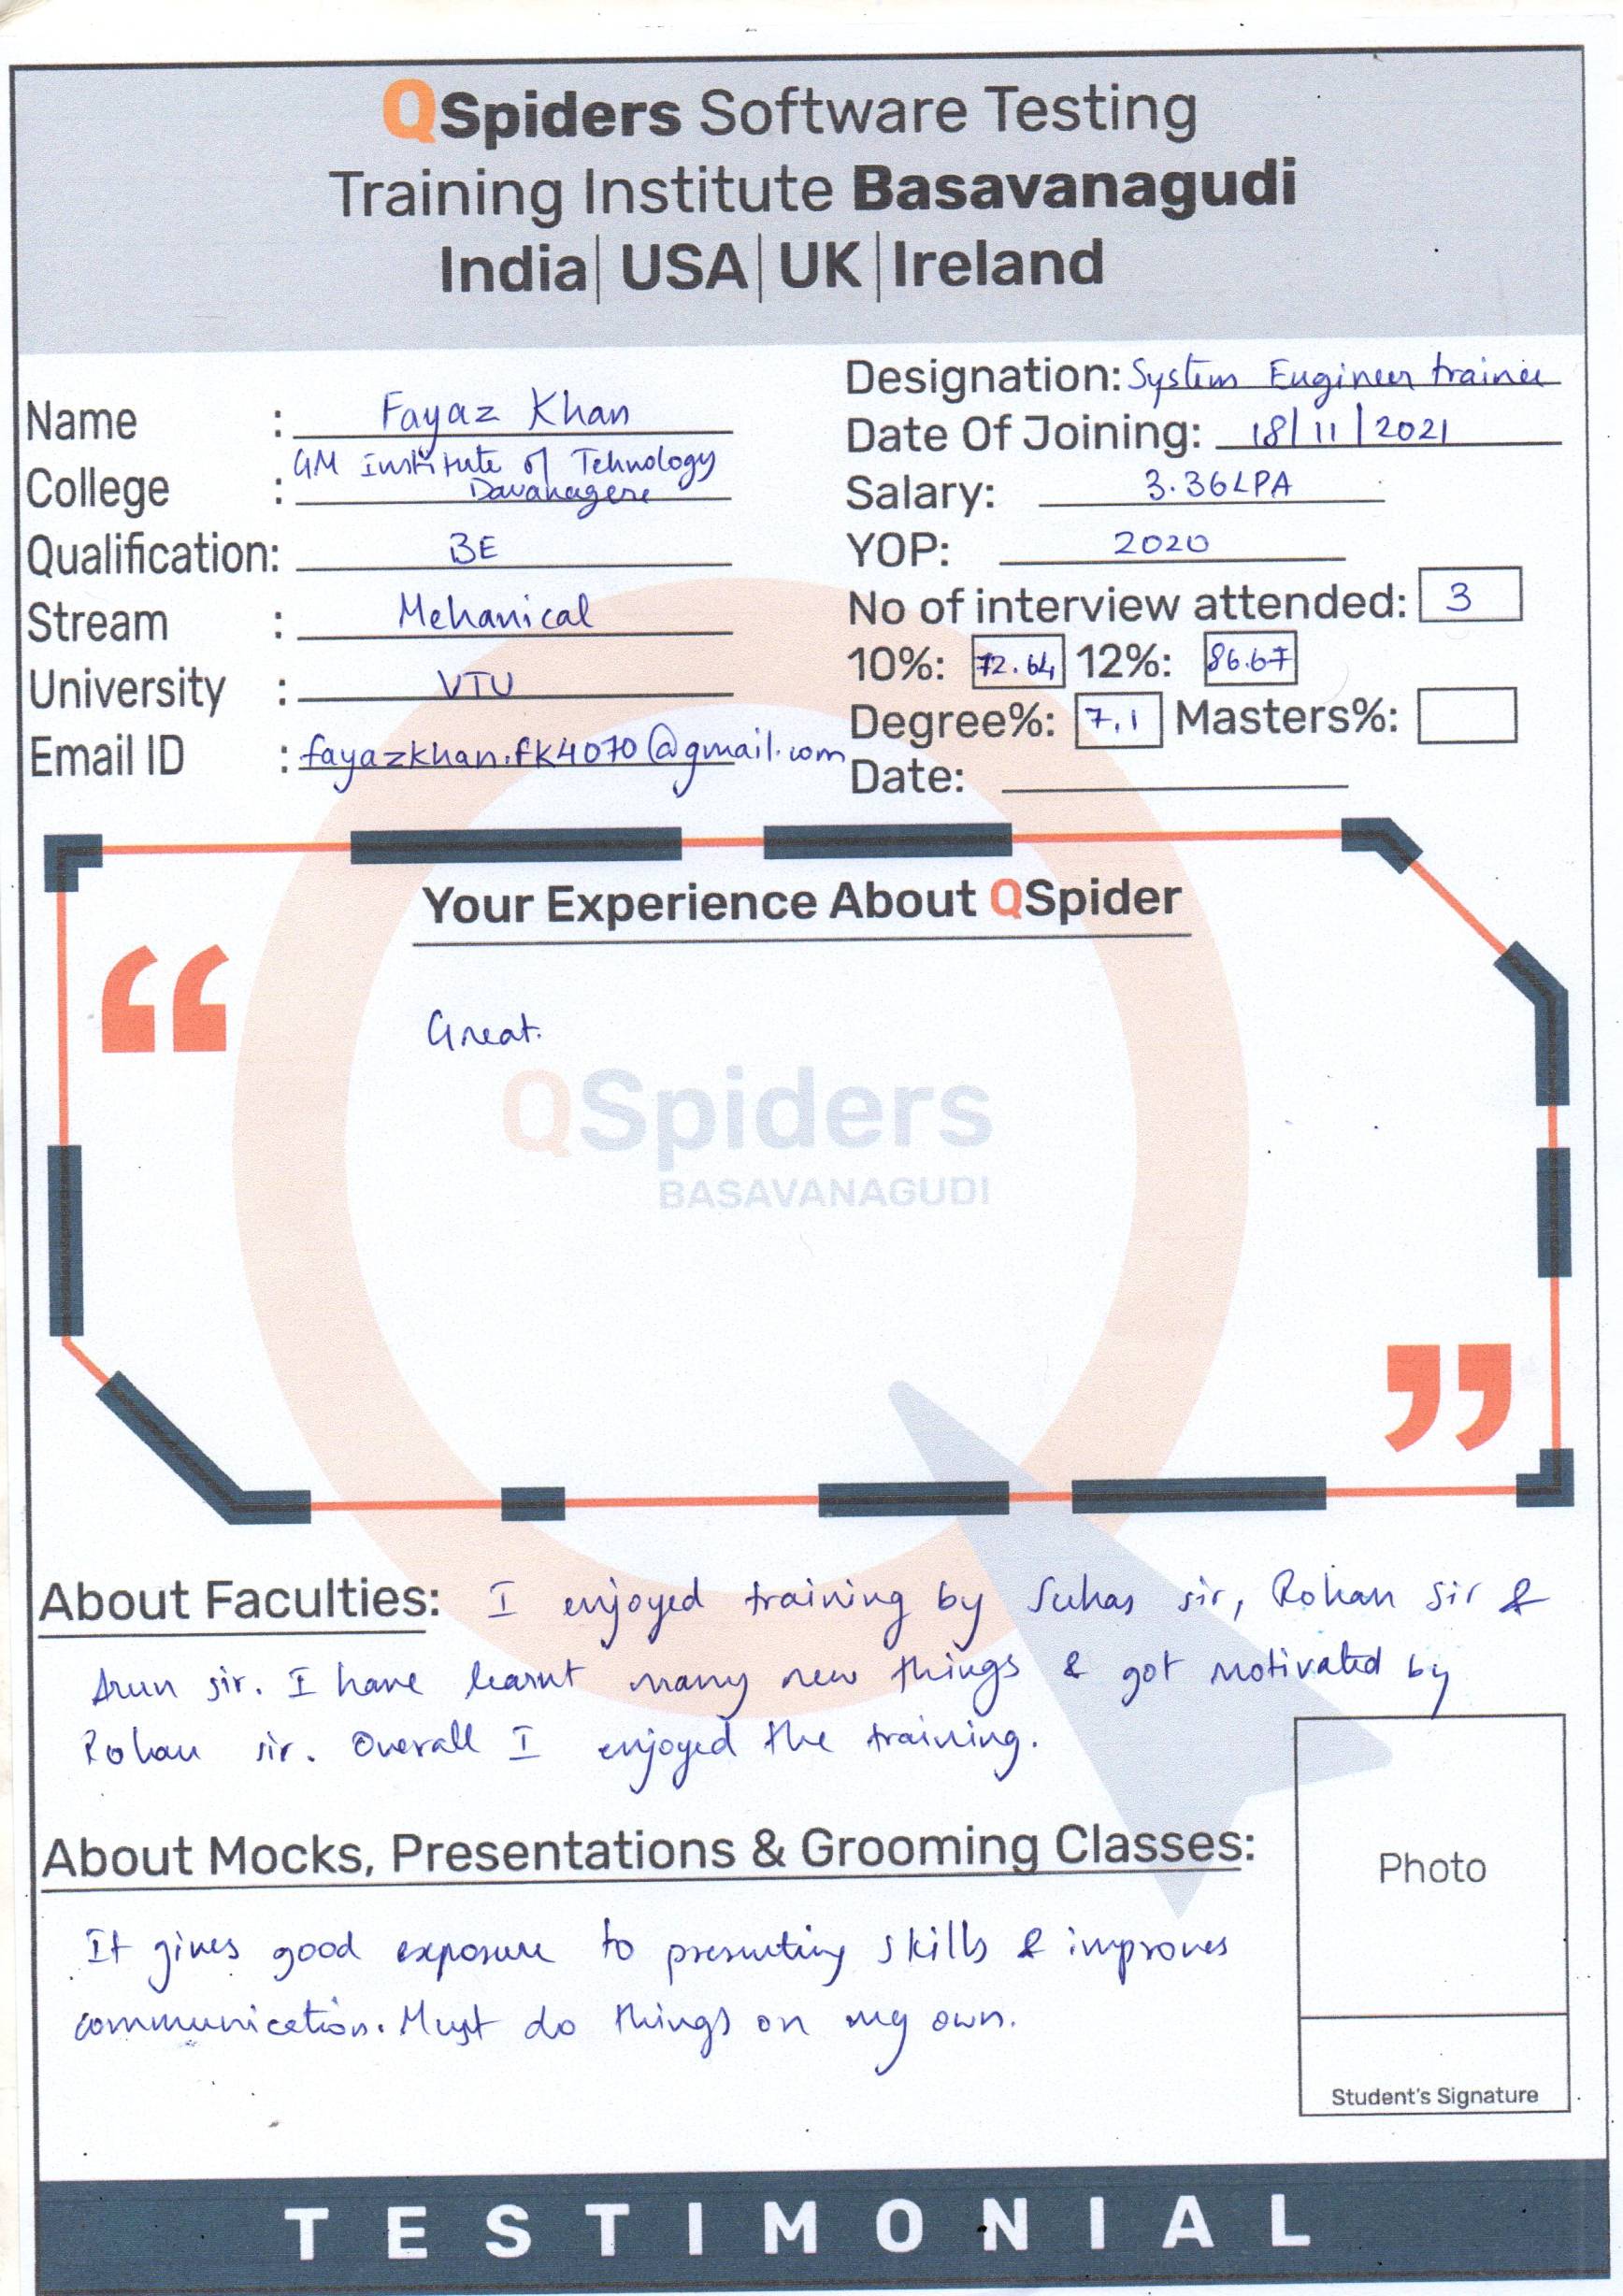 QSpiders Software Testing
Training Institute Basavanagudi
India| USA| UK |Ireland
Name : Fayaz Khan
College : GM Institute of Tehnology
Davanagere
Qualification: BE
Stream : Mehanical
University : VTU
Email ID : fayazkhan.fk4070@gmail.com
Designation: System Engineer trainee
Date Of Joining: 18/11/2021
Salary: 3.36LPA
YOP: 2020
No of interview attended: 3
10%: 72.64 12%: 86.67
Degree%: 7.1 Masters%:
Date:
Your Experience About QSpider
“
Great.
QSpiders
BASAVANAGUDI
”
About Faculties: I enjoyed training by Suhas sir, Rohan sir &
Arun sir. I have learnt many new things & got motivated by
Rohan sir. Overall I enjoyed the training.
About Mocks, Presentations & Grooming Classes:
It gives good exposure to presenting skills & improves
communication. Must do things on my own.
Photo
Student's Signature
TESTIMONIAL